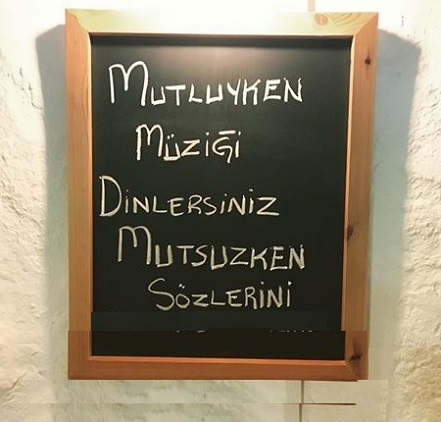 MUTLUYKEN
MÜZİĞİ
DİNLERSİNİZ
MUTSUZKEN
SÖZLERİNİ